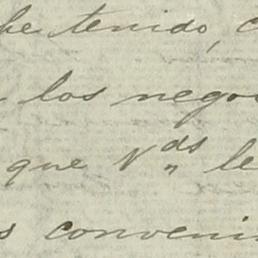 he tenido,
los nego
que Vds le
s conveni